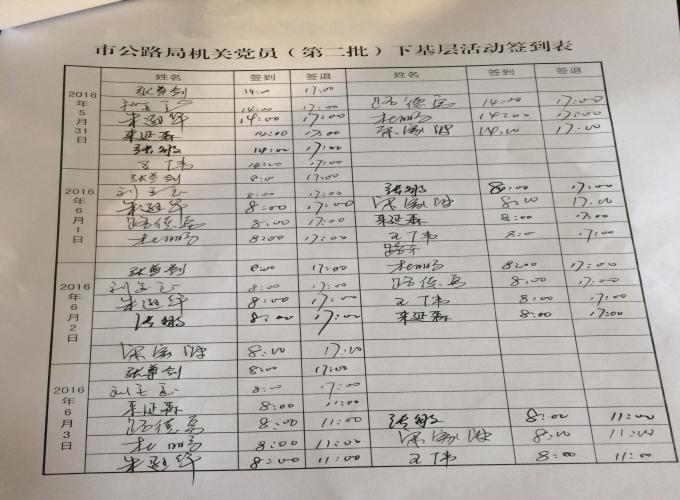 市公路局机关党员（第二批）下基层活动签到表
姓名 签到 签退 姓名 签到 签退
2016年5月31日
张尊剑 14:00 17:00
14:00 17:00 路德岳 14:00 17:00
朱逊华 14:00 17:00 杜鹏 14:00 17:00
来延森 14:00 17:00 14:00 17:00
张敏 14:00 17:00
王伟 14:00 17:00
2016年6月1日
张尊剑 8:00 17:00
刘 8:00 17:00 张敏 8:00 17:00
朱逊华 8:00 17:00 8:00 17:00
路德岳 8:00 17:00 来延森 8:00 17:00
杜鹏 8:00 17:00 王伟 8:00 17:00
2016年6月2日
张尊剑 8:00 17:00 杜鹏 8:00 17:00
刘 8:00 17:00 路德岳 8:00 17:00
朱逊华 8:00 17:00 王伟 8:00 17:00
张敏 8:00 17:00 来延森 8:00 17:00
8:00 17:00
2016年6月3日
张尊剑 8:00 17:00
刘 8:00 17:00
来延森 8:00 11:00
路德岳 8:00 11:00 张敏 8:00 11:00
杜鹏 8:00 11:00 8:00 11:00
朱逊华 8:00 11:00 王伟 8:00 11:00